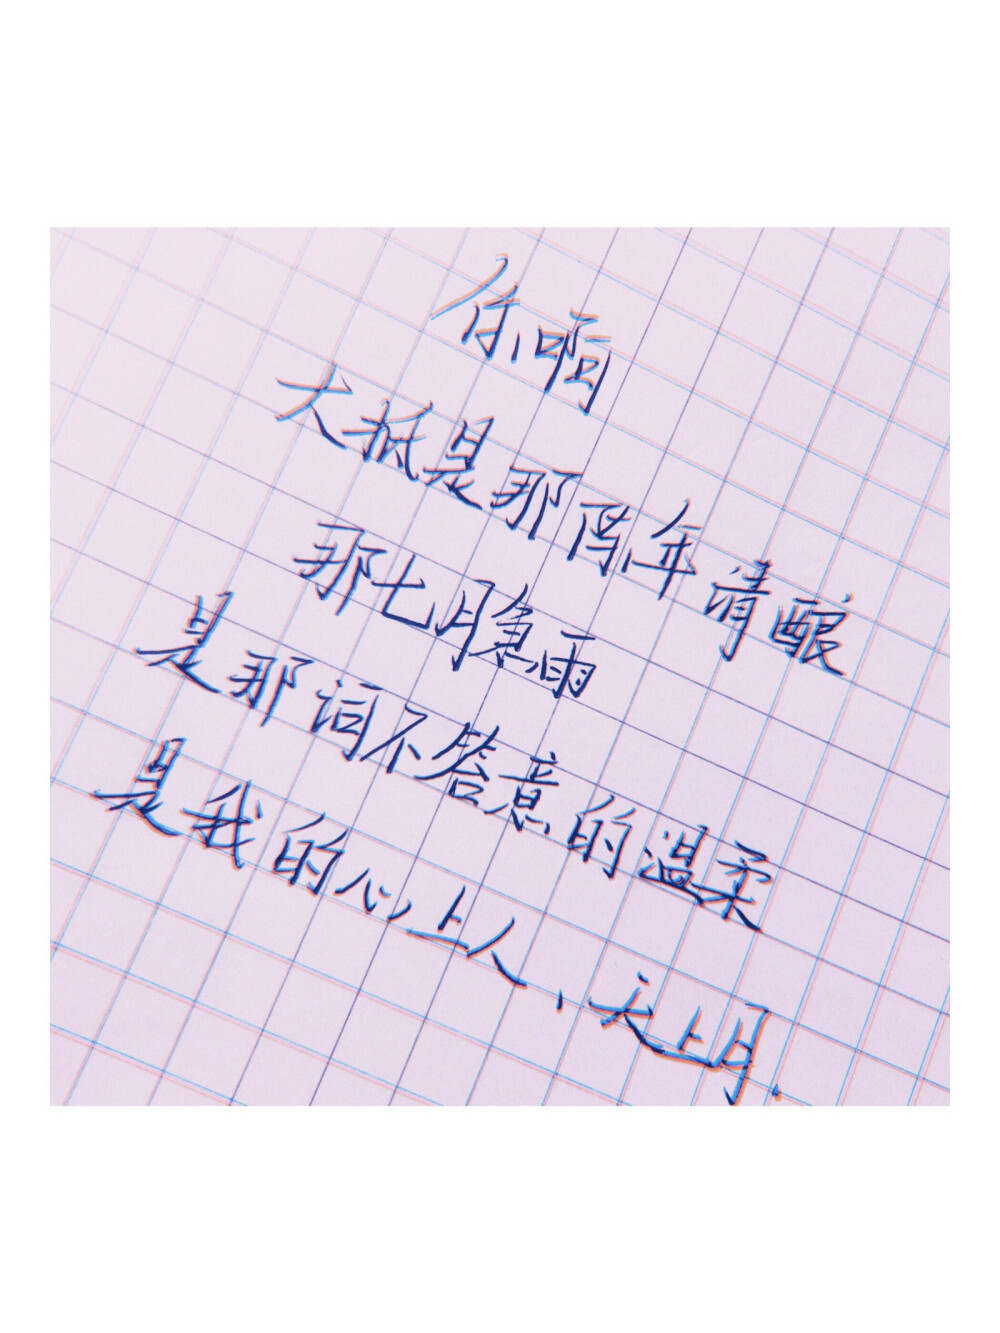 你啊
大抵是那陈年清酿
那七月急雨
是那词不答意的温柔
是我的心上人、天上月.